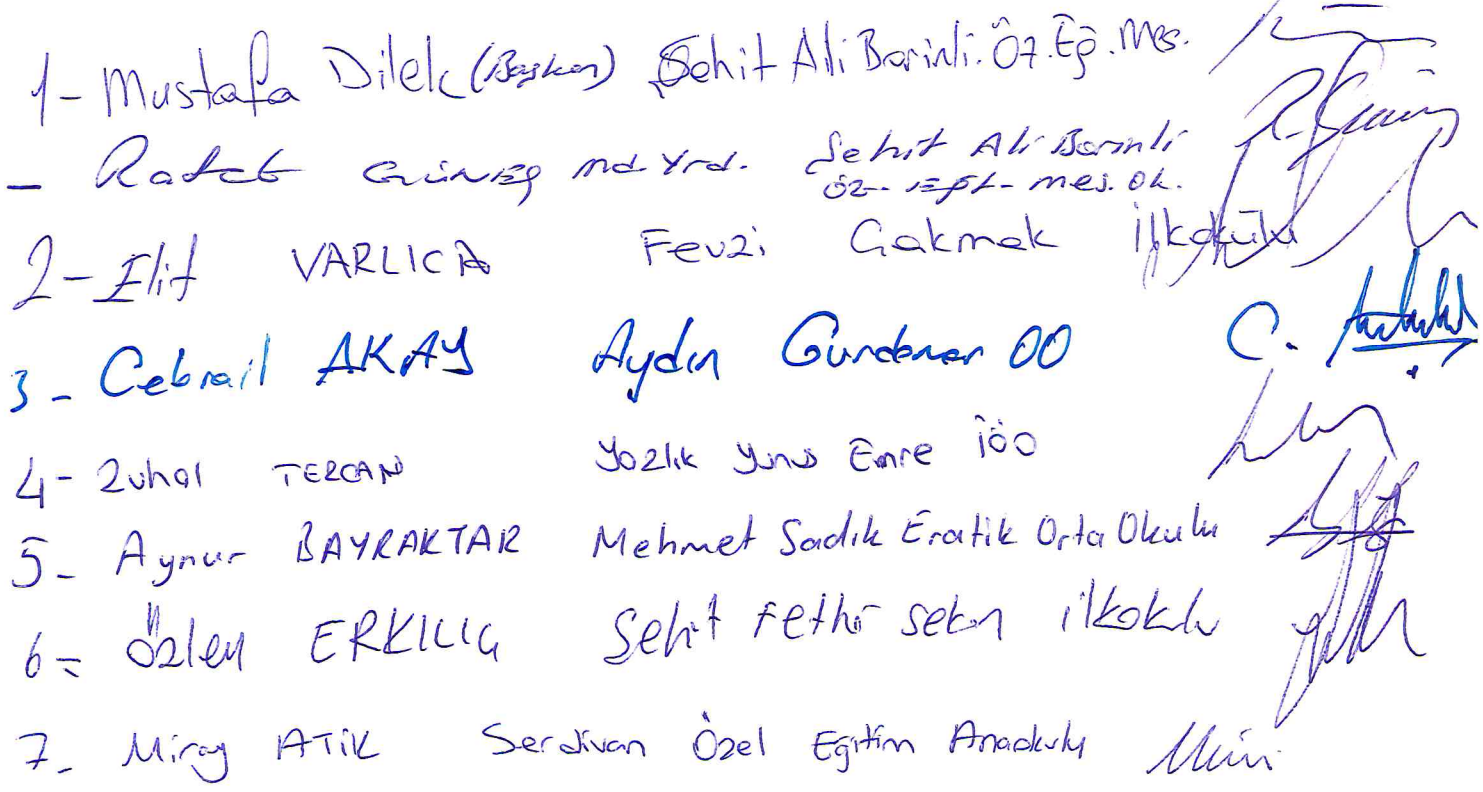 1- Mustafa Dilek (Başkan) Şehit Ali Borinli. Öz. Eğ. Mes.
- Rafet GÜNEŞ md. Yrd. Şehit Ali Borinli
öz- eğt- mes. ok.
2- Elif VARLICA Fevzi Çakmak İlkokulu
3- Cebrail AKAY Aydın Gündoner OO
4- Zuhal TERCAN Yazlık Yunus Emre İÖO
5- Aynur BAYRAKTAR Mehmet Sadık Eratik Orta Okulu
6- Özlem ERKILIÇ Şehit Fethi Sekin ilkokulu
7- Miray ATİK Serdivan Özel Eğitim Anaokulu